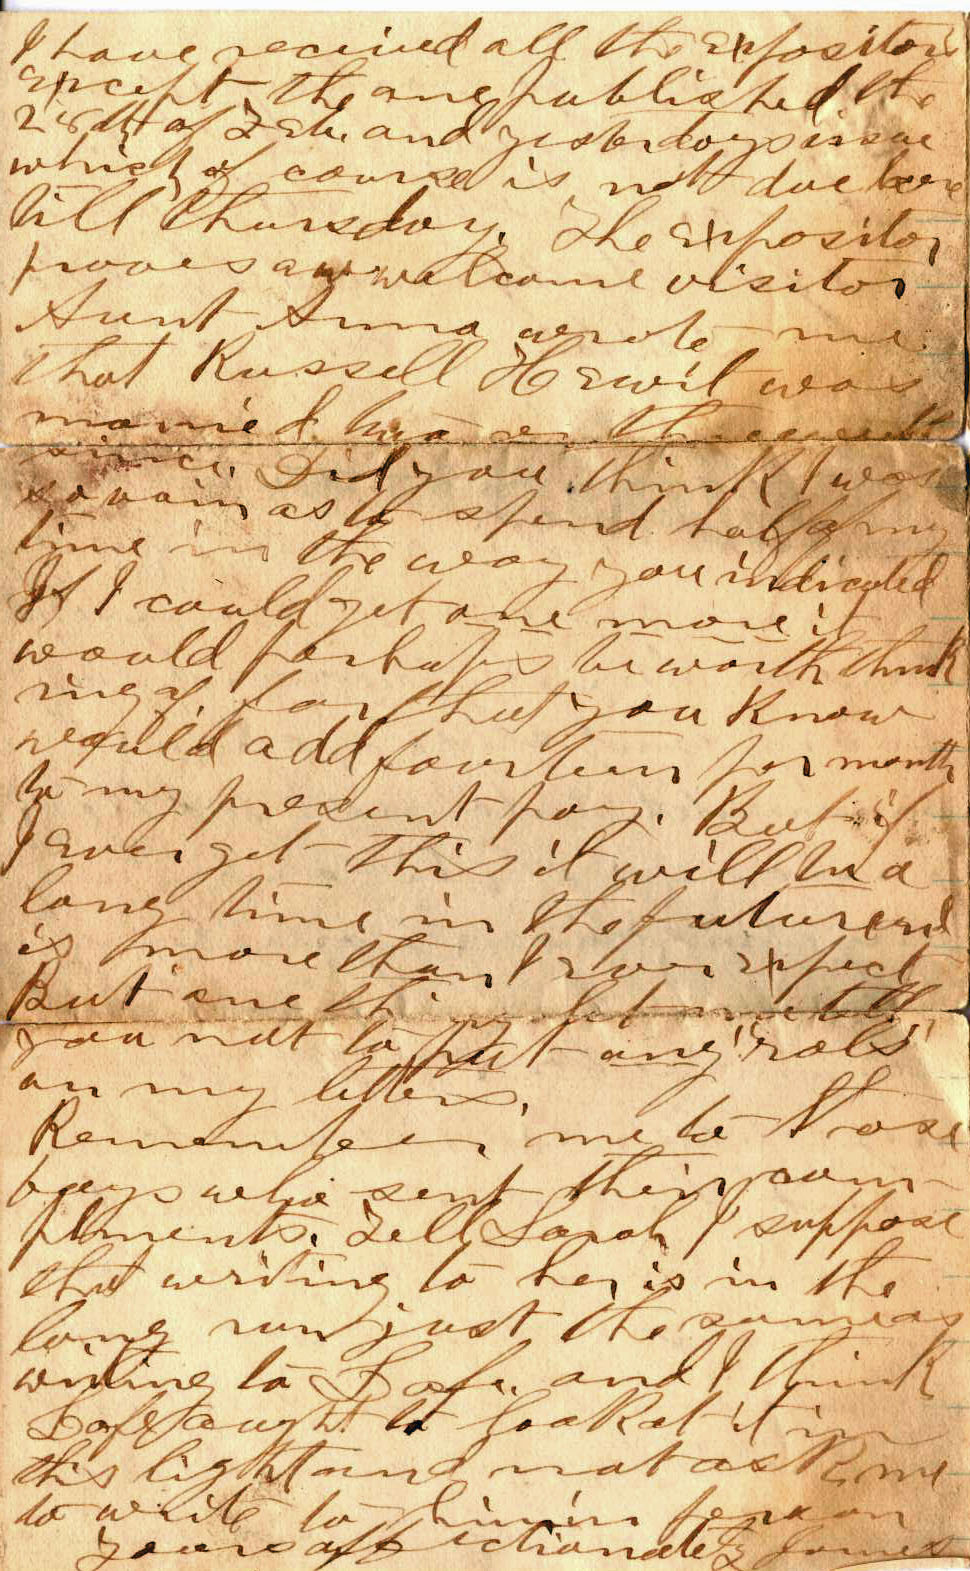 I have recieved all the Expositors
except the one published the
of Feb. and yesterdays issue
which of course is not due here
till Thursday. The Expositor
proves a welcome visitor
Aunt Anna wrote me
that Russell Hewit was
married
since. Did you think I was
so vain as to spend half of my
time in the way you indicated
If I could get one more it
would perhaps be worth think
ing of for that you know
would add fourteen per month
to my present pay. But if
I ever get this it will be a
long time in the future and
is more than I ever expect
But one thing let me tell
you not to put any
on my letters.
Remember me to those
boys who sent their com-
plments. Tell Sarah I suppose
that writing to her is in the
long run just the same as
writing to Lafe. and I think
Lafe ought to look at it in
this light and not ask me
to write to him in person
Yours affectionately James